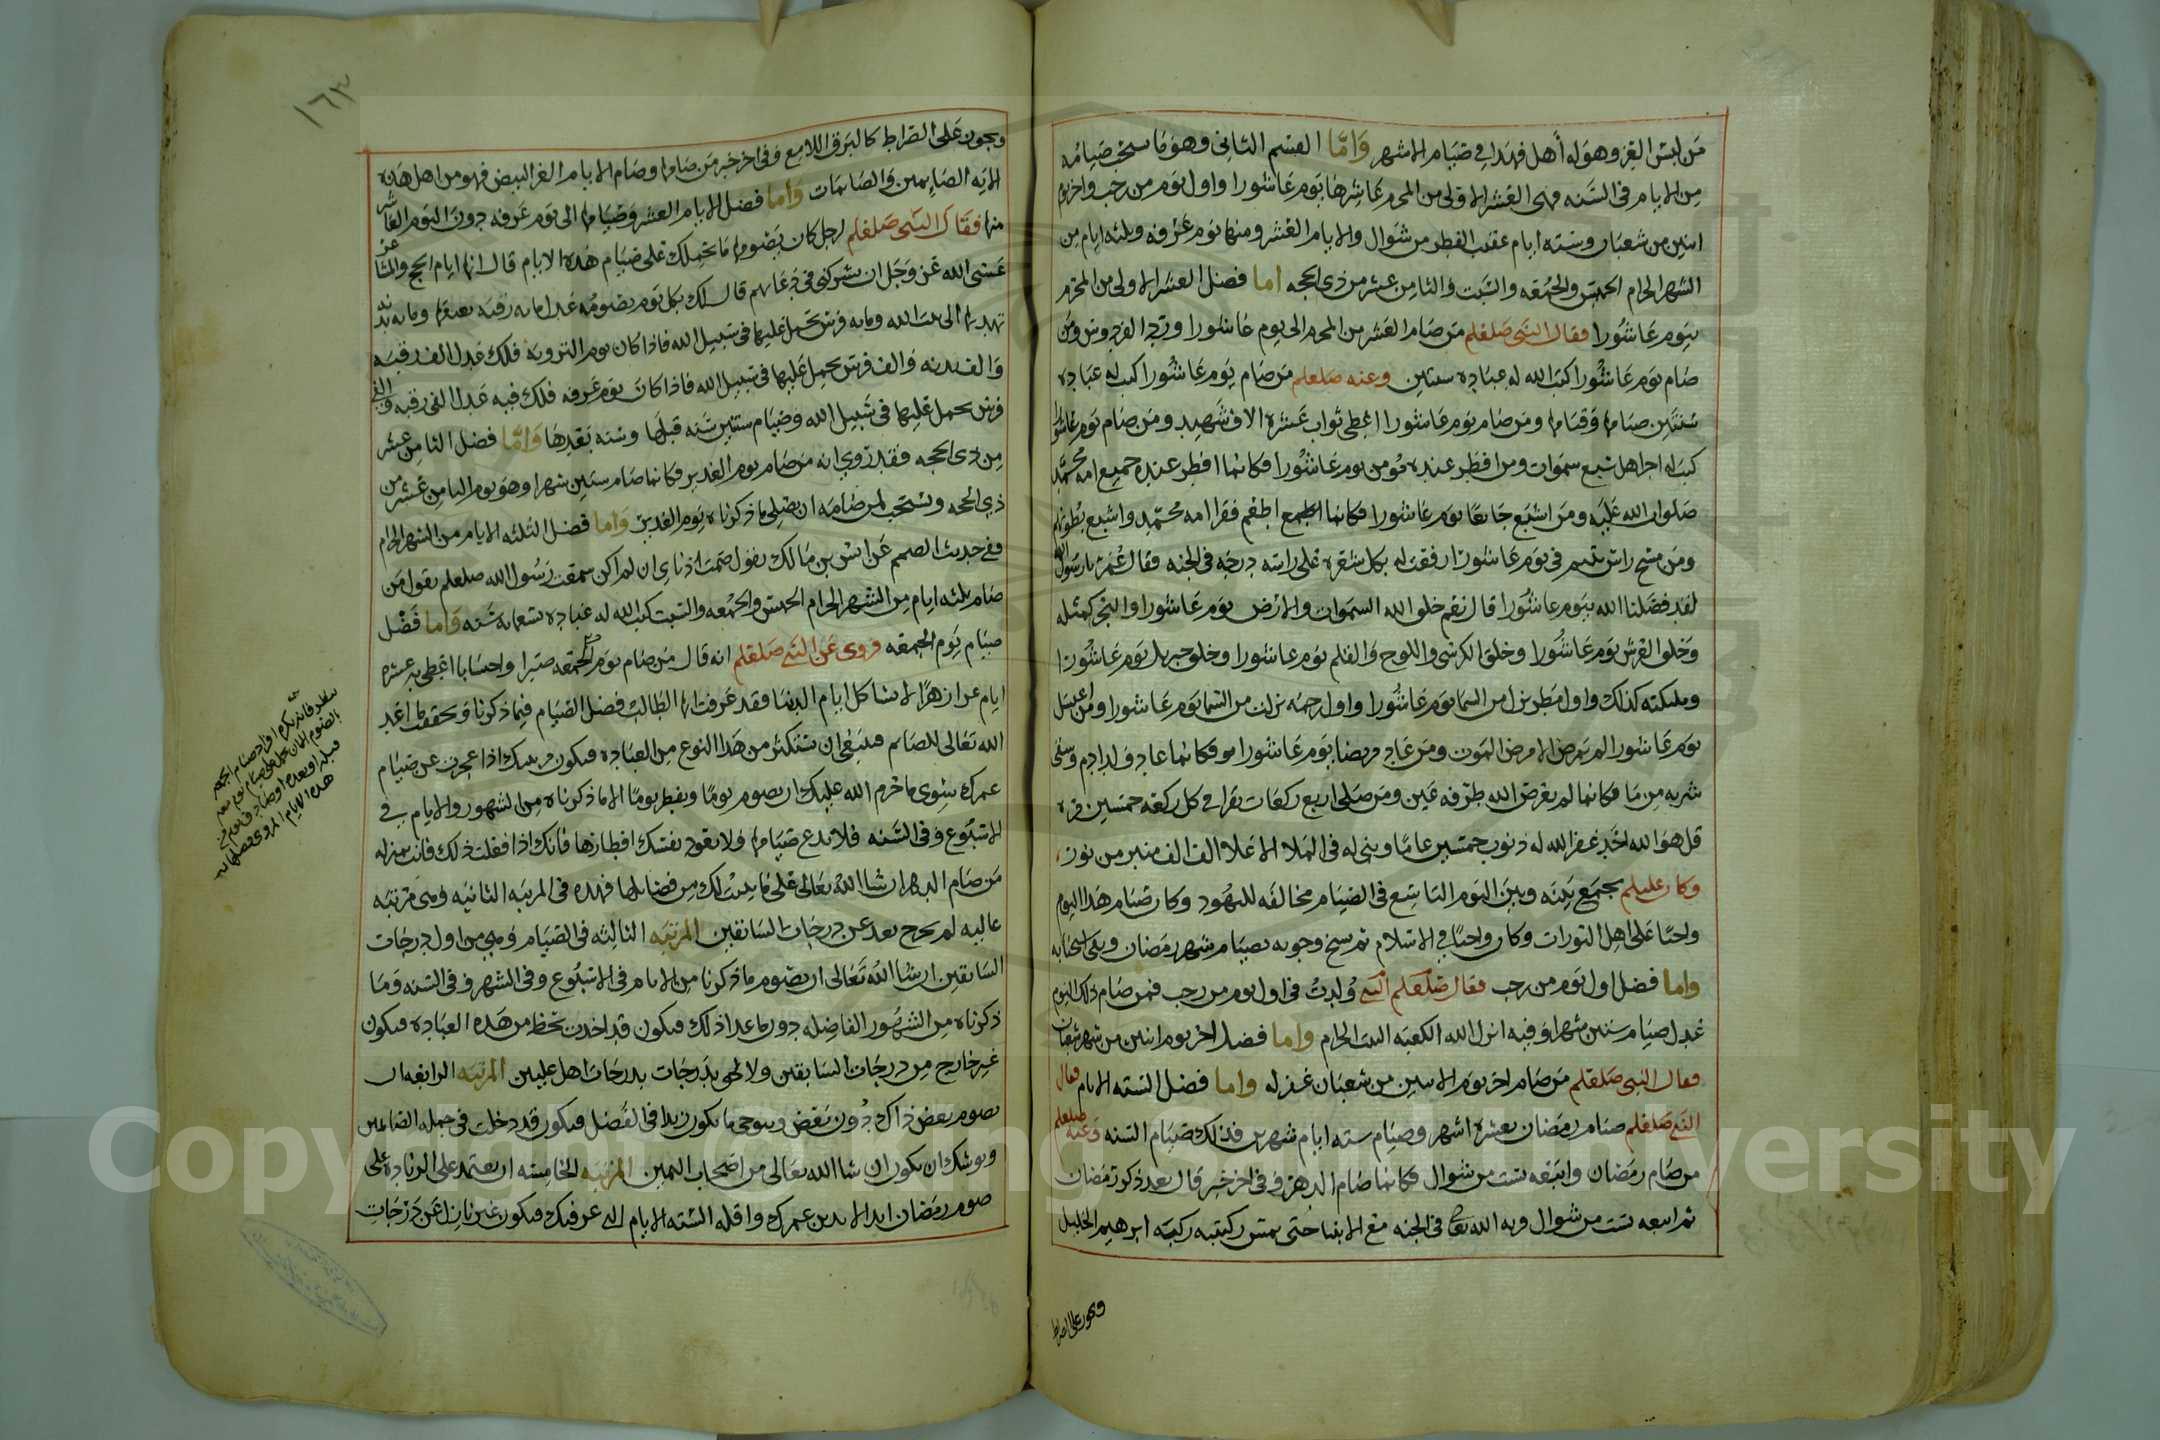 من ليس الغير وهوله أهل فهذا في صيام الاشهر وَامّا القسم الثاني وهو ما يستحب صيامه
من الايام في السنه فهى العشر الاولى من المحرم عاشرها يوم عاشورا واول يوم من رجب واخر يوم
اثنين من شعبان وسته ايام عقب الفطر من شوال والايام العشر ومنها يوم عرفه وثلثه ايام من
الشهر الحرام الخميس والجمعه والسبت والثامن عشر من ذي الحجه اما فضل العشر الاولى من المحرم
بيوم عاشورا فقال النبي صلعلم من صام العشر من المحرم الى يوم عاشورا ورث الفردوس ومن
صام يوم عاشورا كتب الله له عباده ستين وعنه صلعلم من صام يوم عاشورا كتب له عباده
ستين صيامها وقيامها ومن صام يوم عاشورا اعطي ثواب عشره الاف شهيد ومن صام يوم عاشورا
كتب له اجر اهل سبع سموات ومن افطر عنده مومن يوم عاشورا فكانما افطر عنده جميع امه محمد
صلوات الله عليه ومن اشبع جايعا يوم عاشورا فكانما اطعم فقرا امه محمد واشبع بطونهم
ومن مسح راس يتيم في يوم عاشورا رفعت له بكل شعره على راسه درجه في الجنه فقال عمر يارسول الله
لقد فضلنا الله بيوم عاشورا قال نعم خلق الله السموات والارض يوم عاشورا والبحر كمثله
وخلق العرش يوم عاشورا وخلق الكرسي واللوح والقلم يوم عاشورا وخلق جبريل يوم عاشورا
وملايكته كذلك واول مطر نزل من السما يوم عاشورا واول رحمه نزلت من السما يوم عاشورا ومن اغتسل
يوم عاشورا لم يمرض الا مرض الموت ومن عاد مريضا يوم عاشورا فكانما عاد ولد ادم ومن سقى
شربه من ما فكانما لم يعرض الله طرفه عين ومن صلى اربع ركعات يقرا في كل ركعه خمسين مره
قل هو الله احد غفر الله له ذنوب خمسين عاما وبنى له في الملا الاعلا الف الف منبر من نور
وكان عليلم يجمع بينه وبين اليوم التاسع في الصيام مخالفه لليهود وكان صيام هذا اليوم
واجبا على اهل التورات وكان واجبا في الاسلام ثم نسخ وجوبه بصيام شهر رمضان وبقى استحبابه
واما فضل اول يوم من رجب فقال صلعلم النبي وُلدتُ في اول يوم من رجب فمن صام ذلك اليوم
عدل صيام ستين شهرا وفيه انزل الله الكعبه البيت الحرام واما فضل اخر يوم اثنين من شهر شعبان
فقال النبي صلعلم من صام اخر يوم الاثنين من شعبان غفر له واما فضل السته الايام فقال
النبي صلعلم صيام رمضان بعشره اشهر وصيام سته ايام شهرين فذلك صيام السنه وعنه صلعلم
من صام رمضان واتبعه ست من شوال فكانما صام الدهر وفي اخر خبر قال بعد ذكر رمضان
ثم اتبعه ست من شوال وبه الله تعالى في الجنه مع الانبيا حتى يمس ركبته ركبه ابرهيم الخليل
ويجوز على الصراط
١٦٣
ويجوز على الصراط كالبرق اللامع وفي اخر خبر من صامها وصام الايام الغر البيض فهو من اهل هذه
الايه الصايمين والصايمات واما فضل الايام العشر وصيامها الى يوم عرفه دون اليوم العاشر
منها فقال النبي صلعلم لرجل كان يصومها ما يحملك على صيام هذه الايام قال انها ايام الحج والمشاعر
عسى الله عز وجل ان يشركني في دعائهم قال لك بكل يوم تصومه عدل مايه رقبه تعتقها ومايه بدنه
تهديها الى بيت الله ومايه فرس تحمل عليها في سبيل الله فاذا كان يوم الترويه فلك عدل الف رقبه
والف بدنه والف فرس تحمل عليها في سبيل الله فاذا كان يوم عرفه فلك فيه عدل الفي رقبه والفي
فرس يحمل عليها في سبيل الله وصيام ستين سنه قبلها وسنه بعدها وامّا فضل الثامن عشر
من ذي الحجه فقد روي انه من صام يوم الغدير فكانما صام ستين شهرا وهو يوم الثامن عشر من
ذي الحجه ويستحب لمن صامه ان يصلي ما ذكرناه يوم الغدير واما فضل الثلثه الايام من الشهر الحرام
ففي حديث الصمم عن انس بن مالك يقول صمت اذناي ان لم اكن سمعت رسول الله صلعلم يقول من
صام ثلثه ايام من الشهر الحرام الخميس والجمعه والسبت كتب الله له عباده تسعمايه سنه واما فضل
صيام يوم الجمعه فروى عن النبي صلعلم انه قال من صام يوم الجمعه صبرا واحتسابا اعطي به عشره
ايام غر ازهر لا تشاكل ايام الدنيا فقد عرفت ايها الطالب فضل الصيام فيما ذكرنا وتحققت ما اعد
الله تعالى للصايم فينبغي ان تستكثر من هذا النوع من العباده فيكون اذا عجزت عن صيام
عمرك سوى ما حرم الله عليك ان تصوم يوما وتفطر يوما الا ما ذكرناه من الشهور والايام في
الاسبوع وفي السنه فلا تدع صيامها ولا تعود نفسك افطارها فانك اذا فعلت ذلك فانت بمنزله
من صام الدهر ان شا الله تعالى على ما بينت لك من فضايلها فهذه في المرتبه الثانيه وهي مرتبه
عاليه لم يخرج بعد عن درجات السابقين المرتبه الثالثه في الصيام وهي من اول درجات
السابقين ان شا الله تعالى ان تصوم ما ذكرنا من الايام في الاسبوع وفي الشهر وفي السنه وما
ذكرناه من الشهور الفاضله دون ما عدا ذلك فيكون قد اخذت بحظ من هذه العباده فيكون
غير خارج من درجات السابقين ولا بدرجات اهل عليين المرتبه الرابعه ان
تصوم بعض ذاك دون بعض ويتوخى ما يكون زايدا في الفضل فيكون قد دخلت في جمله الصايمين
ويوشك ان يكون ان شا الله تعالى من اصحاب اليمين المرتبه الخامسه ان يعتمد على الزياده على
صوم رمضان ابد الابدين عمرك واقله السته الايام التي عرفتك فيكون غير نازل عن درجات
Copyright © King Saud University